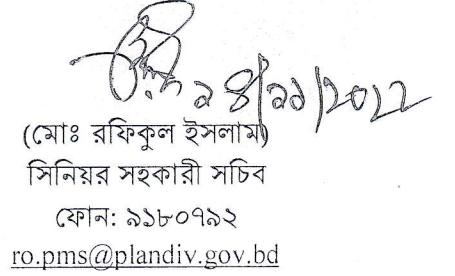 (মোঃ রফিকুল ইসলাম)
সিনিয়র সহকারী সচিব
ফোন: ৯১৮০৭৯২
ro.pms@plandiv.gov.bd